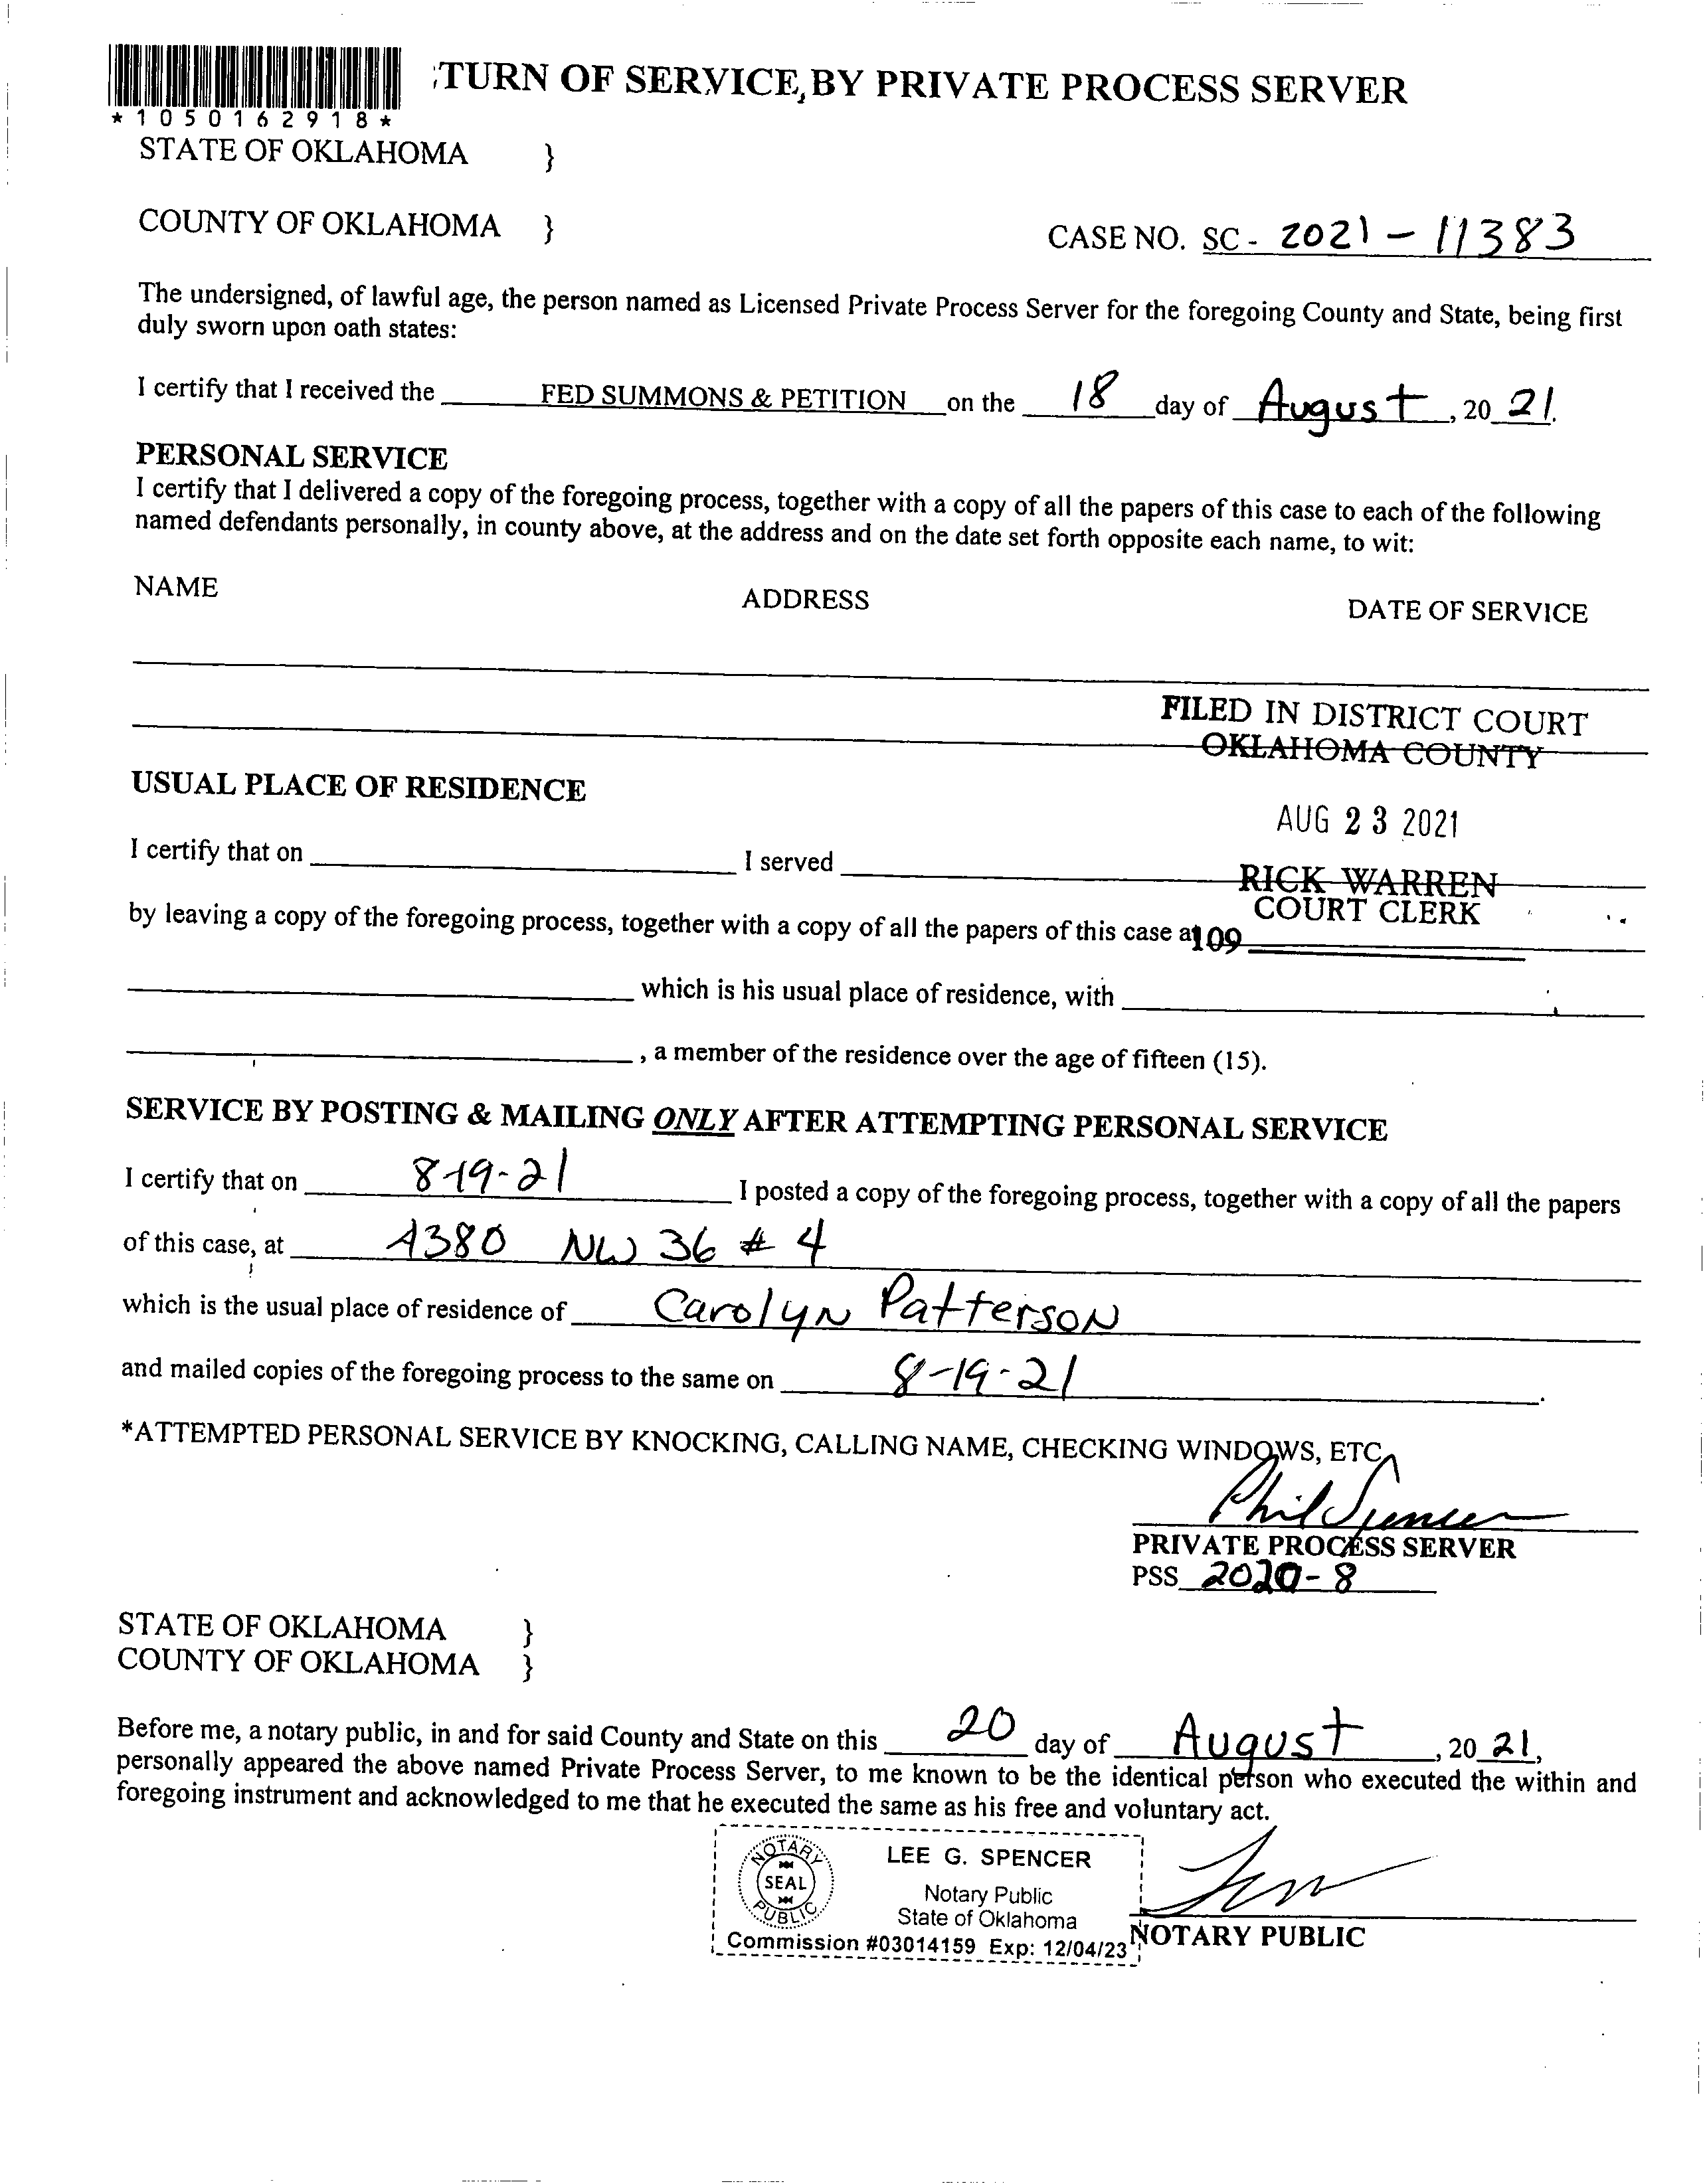 TURN OF SERVICE, BY PRIVATE PROCESS SERVER
*1050162918*
STATE OF OKLAHOMA }
COUNTY OF OKLAHOMA } CASE NO. SC - 2021 - 11383
The undersigned, of lawful age, the person named as Licensed Private Process Server for the foregoing County and State, being first
duly sworn upon oath states:
I certify that I received the FED SUMMONS & PETITION on the 18 day of August, 20 21.
PERSONAL SERVICE
I certify that I delivered a copy of the foregoing process, together with a copy of all the papers of this case to each of the following
named defendants personally, in county above, at the address and on the date set forth opposite each name, to wit:
NAME ADDRESS DATE OF SERVICE
FILED IN DISTRICT COURT
OKLAHOMA COUNTY
USUAL PLACE OF RESIDENCE
AUG 23 2021
I certify that on I served
RICK WARREN
COURT CLERK
by leaving a copy of the foregoing process, together with a copy of all the papers of this case at
109
which is his usual place of residence, with
, a member of the residence over the age of fifteen (15).
SERVICE BY POSTING & MAILING ONLY AFTER ATTEMPTING PERSONAL SERVICE
I certify that on 8-19-21 I posted a copy of the foregoing process, together with a copy of all the papers
of this case, at NW 36 # 4
which is the usual place of residence of Carolyn Patterson
and mailed copies of the foregoing process to the same on 8-19-21.
*ATTEMPTED PERSONAL SERVICE BY KNOCKING, CALLING NAME, CHECKING WINDOWS, ETC
Phil Spencer
PRIVATE PROCESS SERVER
PSS 2020-8
STATE OF OKLAHOMA }
COUNTY OF OKLAHOMA }
Before me, a notary public, in and for said County and State on this 20 day of August, 20 21,
personally appeared the above named Private Process Server, to me known to be the identical person who executed the within and
foregoing instrument and acknowledged to me that he executed the same as his free and voluntary act.
NOTARY PUBLIC SEAL
LEE G. SPENCER
Notary Public
State of Oklahoma
Commission #03014159 Exp: 12/04/23
NOTARY PUBLIC